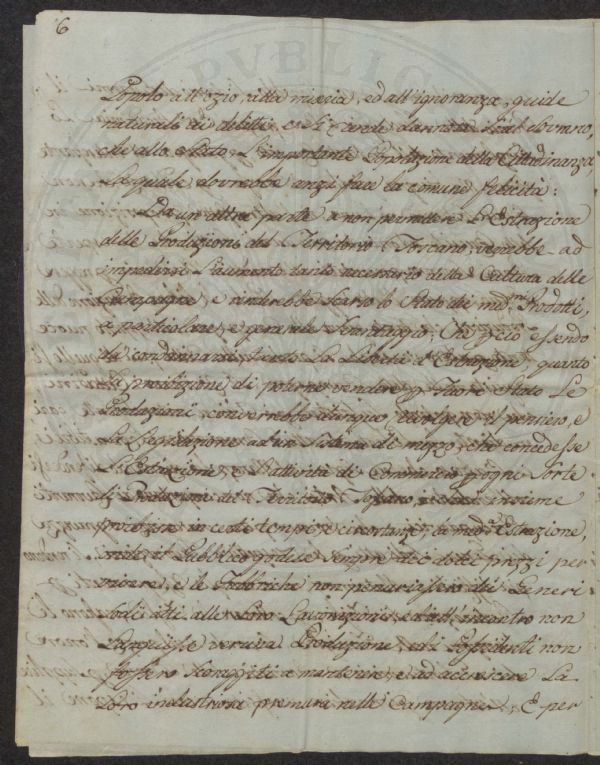 6
Popolo all'ozio, alla miseria, ed all'ignoranza, guide
naturali ai delitti, e si rende dannosa
che allo Stato, l'importante Popolazione della Cittadinanza,
la quale dovrebbe anzi fare la comune felicità:
Da un altra parte a non permettere l'Estrazione
delle Produzioni del Territorio Toscano, verrebbe ad
impedirsi l'aumento tanto necessario della Cultura delle
Campagne, e renderebbe scarso lo Stato dei med.mi Prodotti,
e particolare, e generale svantaggio; Che però essendo
da condannarsi tanto la Libertà d'Estrazione, quanto
la proibizione di poterne vendere p. Fuori Stato Le
Produzioni, converrebbe dunque rivolgere il pensiero, e
La Legislazione ad un Sistema di mezzo, che concedesse
L'Estrazione, e l'attività di Commercio p. ogni Sorte
di Produzioni del Territorio Toscano, e insieme
proibisse in certi tempi, e circostanze, la med. Estrazione,
il Pubblico godesse sempre dei prezzi per
vivere, e le Fabbriche non penuriassero dei Generi
sodi atti alle Loro Lavorazioni, ed all'incontro non
Languisse veruna Produzione, ed i Possidenti non
fossero a mantenere, e ad accrescere La
Loro industriosa premura nelle Campagne; E per